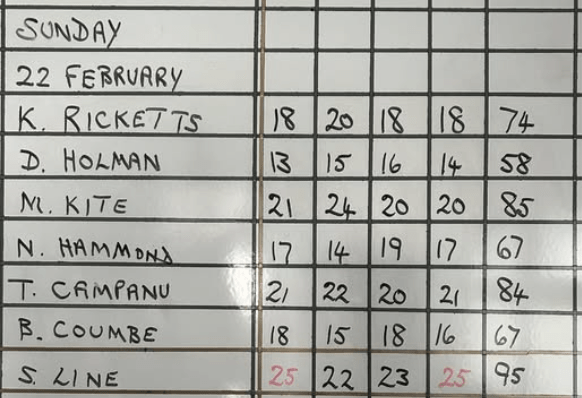 SUNDAY
22 FEBRUARY
K. RICKETTS 18 20 18 18 74
D. HOLMAN 13 15 16 14 58
M. KITE 21 24 20 20 85
N. HAMMOND 17 14 19 17 67
T. CAMPANU 21 22 20 21 84
B. COUMBE 18 15 18 16 67
S. LINE 25 22 23 25 95